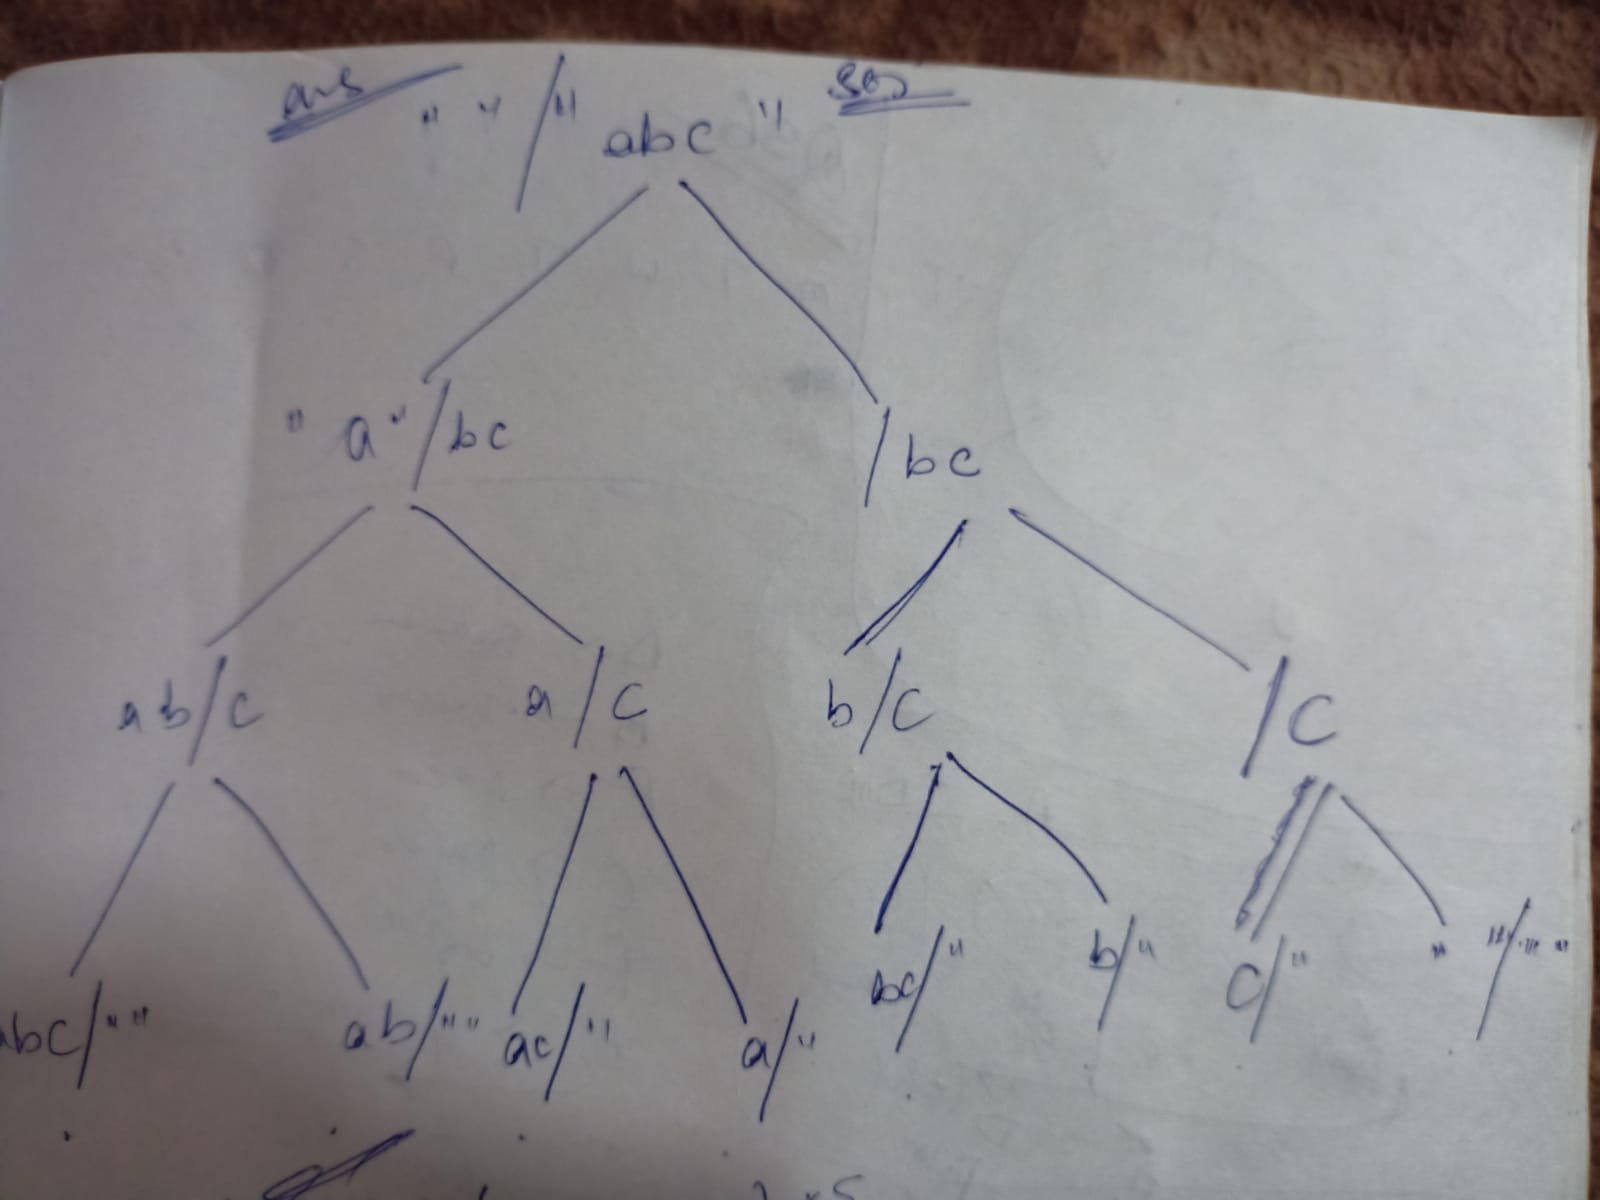 ans
" " / " abc "
" a" / bc / bc
ab/c a/c b/c /c
abc/"" ab/"" ac/" a/" bc/" b/" c/" " "/""